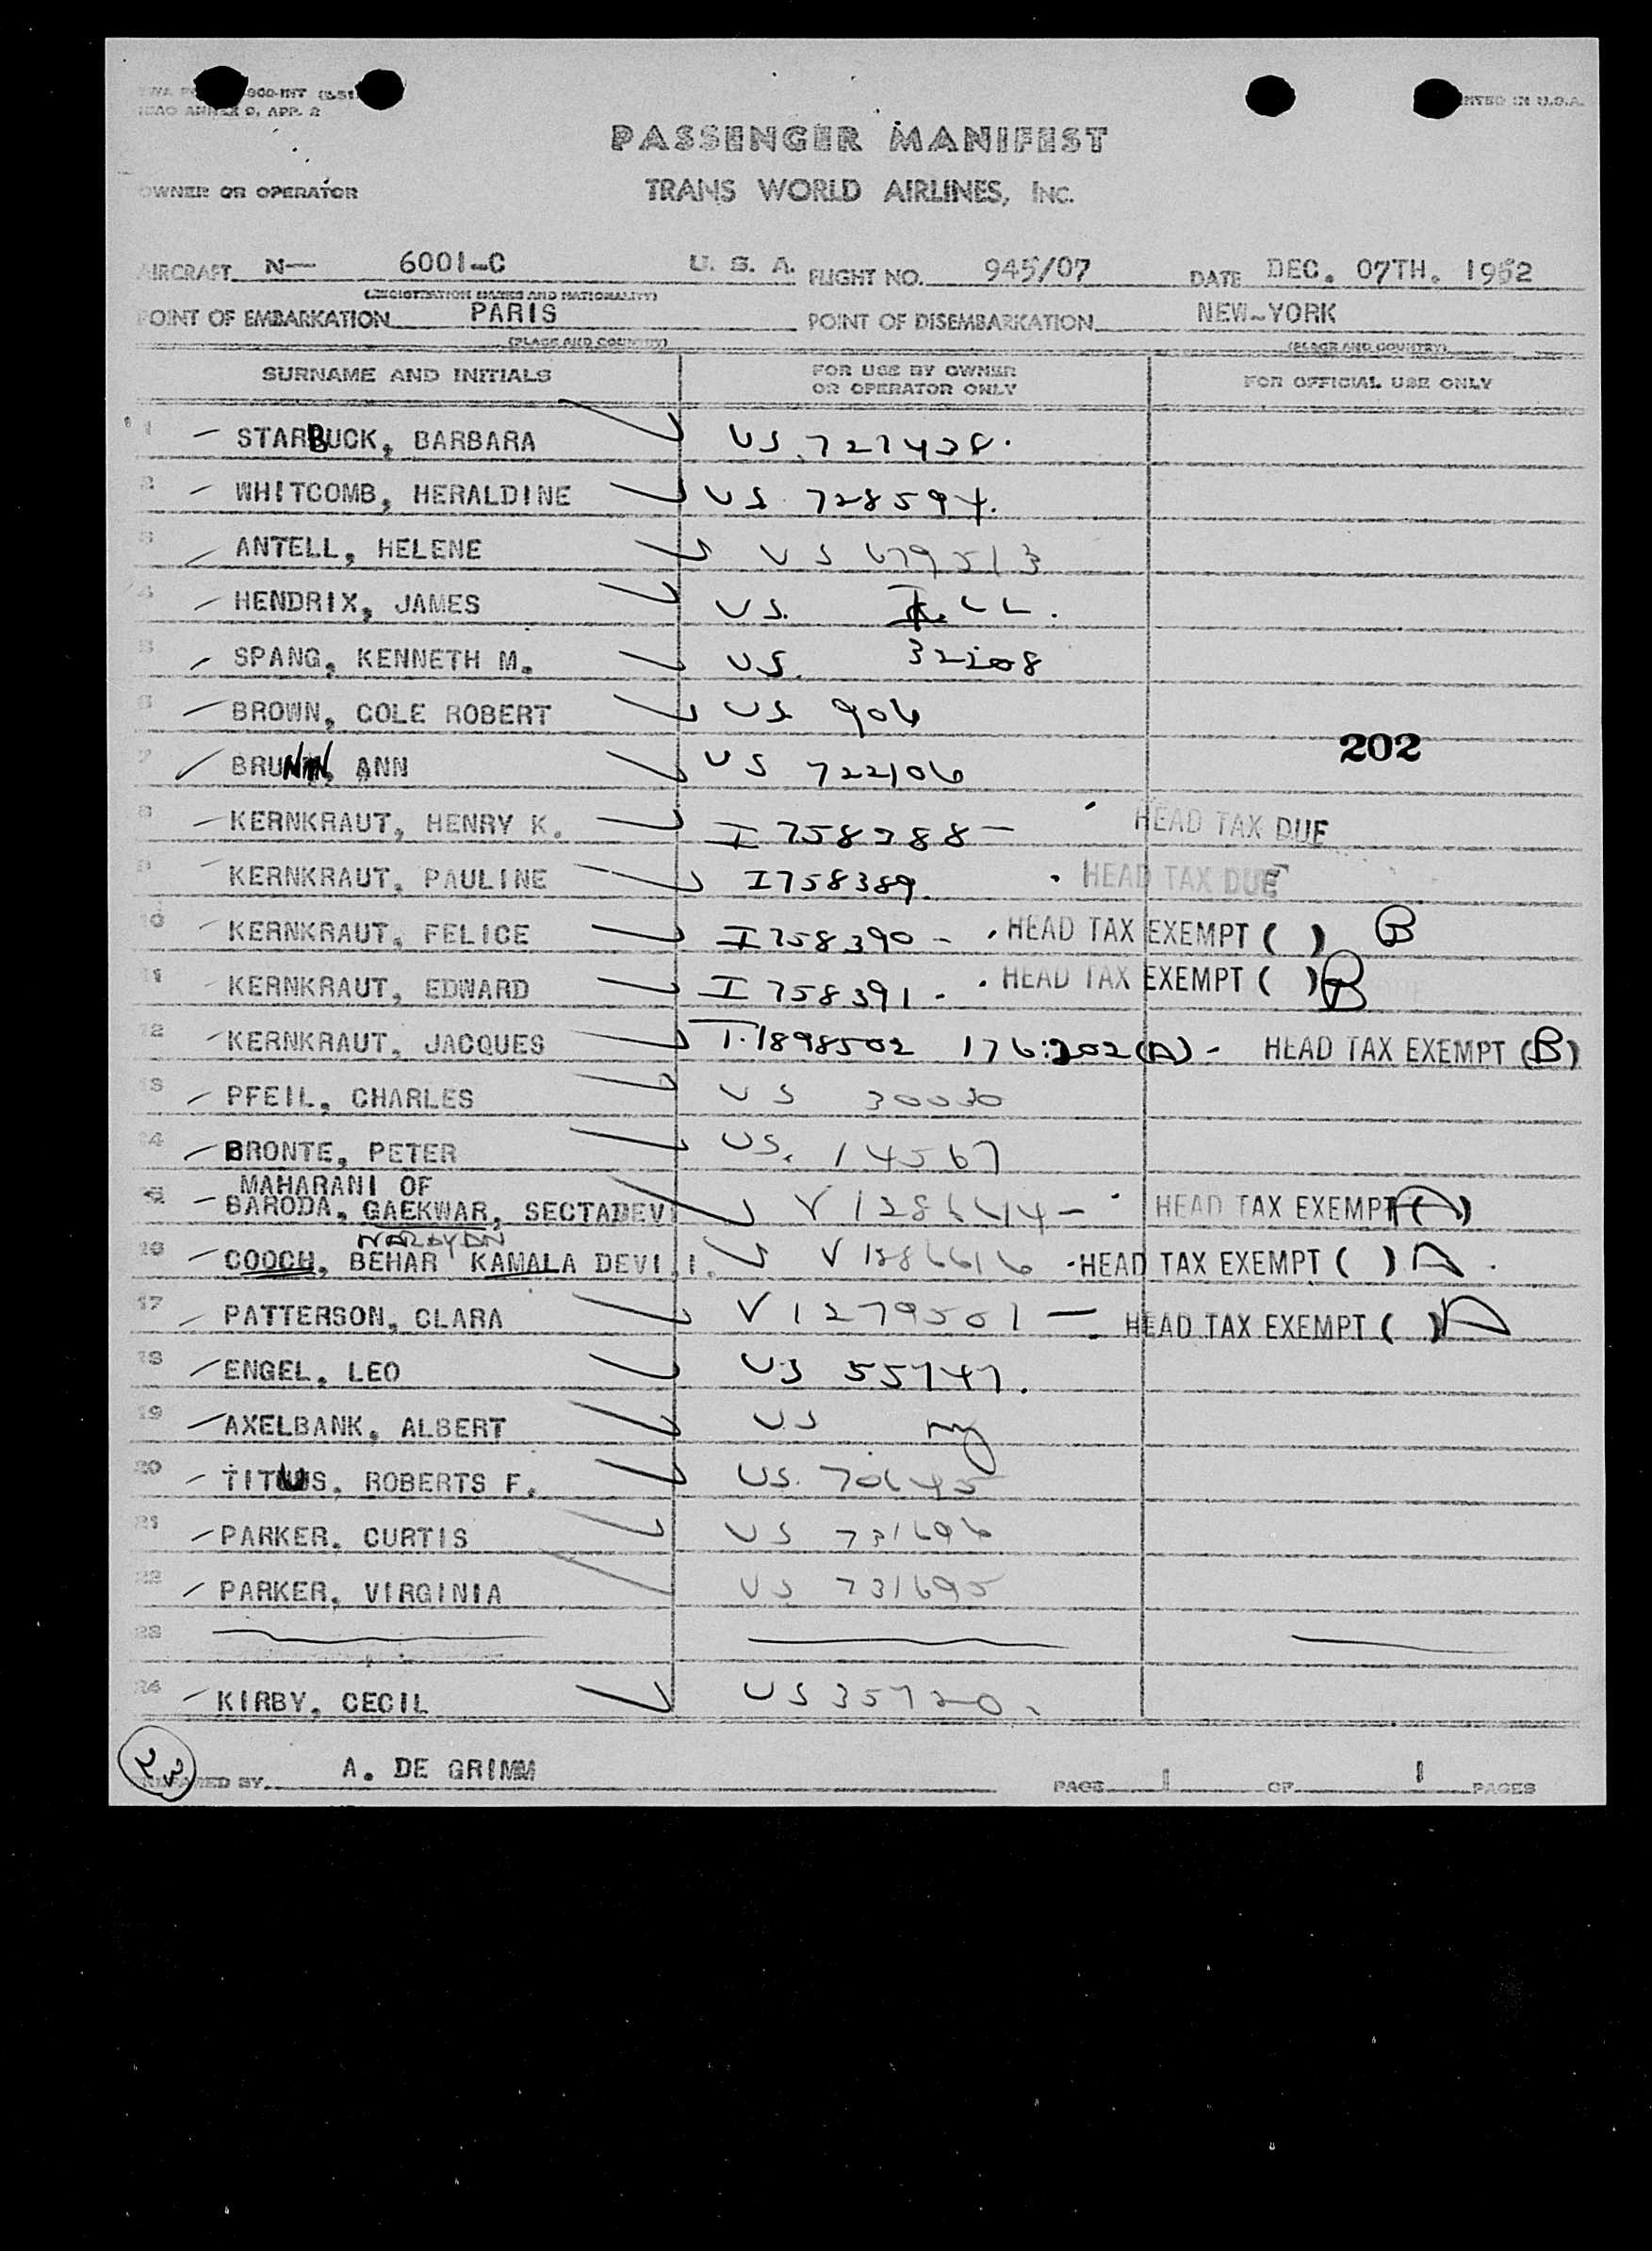 ICAO ANNEX 9, APP. 2
PASSENGER MANIFEST
OWNER OR OPERATOR TRANS WORLD AIRLINES, INC.
AIRCRAFT N— 6001-C U. S. A. FLIGHT NO. 945/07 DATE DEC. 07TH. 1952
(REGISTRATION MARKS AND NATIONALITY)
POINT OF EMBARKATION PARIS POINT OF DISEMBARKATION NEW-YORK
(PLACE AND COUNTRY) (PLACE AND COUNTRY)
SURNAME AND INITIALS FOR USE BY OWNER OR OPERATOR ONLY FOR OFFICIAL USE ONLY
1 STARBUCK, BARBARA US.
2 WHITCOMB, HERALDINE US 728594.
3 ANTELL, HELENE US 679513
4 HENDRIX, JAMES US.
5 SPANG, KENNETH M. US.
6 BROWN, COLE ROBERT US 906
202
7 BRUNN, ANN US 722106
8 KERNKRAUT, HENRY K. I 758288 — HEAD TAX DUE
9 KERNKRAUT, PAULINE I758389. HEAD TAX DUE
10 KERNKRAUT, FELICE I 758390 - HEAD TAX EXEMPT ( ) B
11 KERNKRAUT, EDWARD I 758391 - HEAD TAX EXEMPT ( ) B
12 KERNKRAUT, JACQUES T.1898502 176:202(A) - HEAD TAX EXEMPT (B)
13 PFEIL, CHARLES US 30030
14 BRONTE, PETER US. 14567
MAHARANI OF
15 BARODA, GAEKWAR, SECTADEVI V 1286614 - HEAD TAX EXEMPT (A)
NARAYAN
16 COOCH, BEHAR KAMALA DEVI V 1286616 - HEAD TAX EXEMPT ( ) A
17 PATTERSON, CLARA V 1279501 — HEAD TAX EXEMPT ( ) A
18 ENGEL, LEO US 55747.
19 AXELBANK, ALBERT US ny
20 TITUS, ROBERTS F. US. 70645
21 PARKER, CURTIS US 731696
22 PARKER, VIRGINIA US 731695
23
24 KIRBY, CECIL US 35720.
23 PREPARED BY A. DE GRIMM PAGE 1 OF 1 PAGES